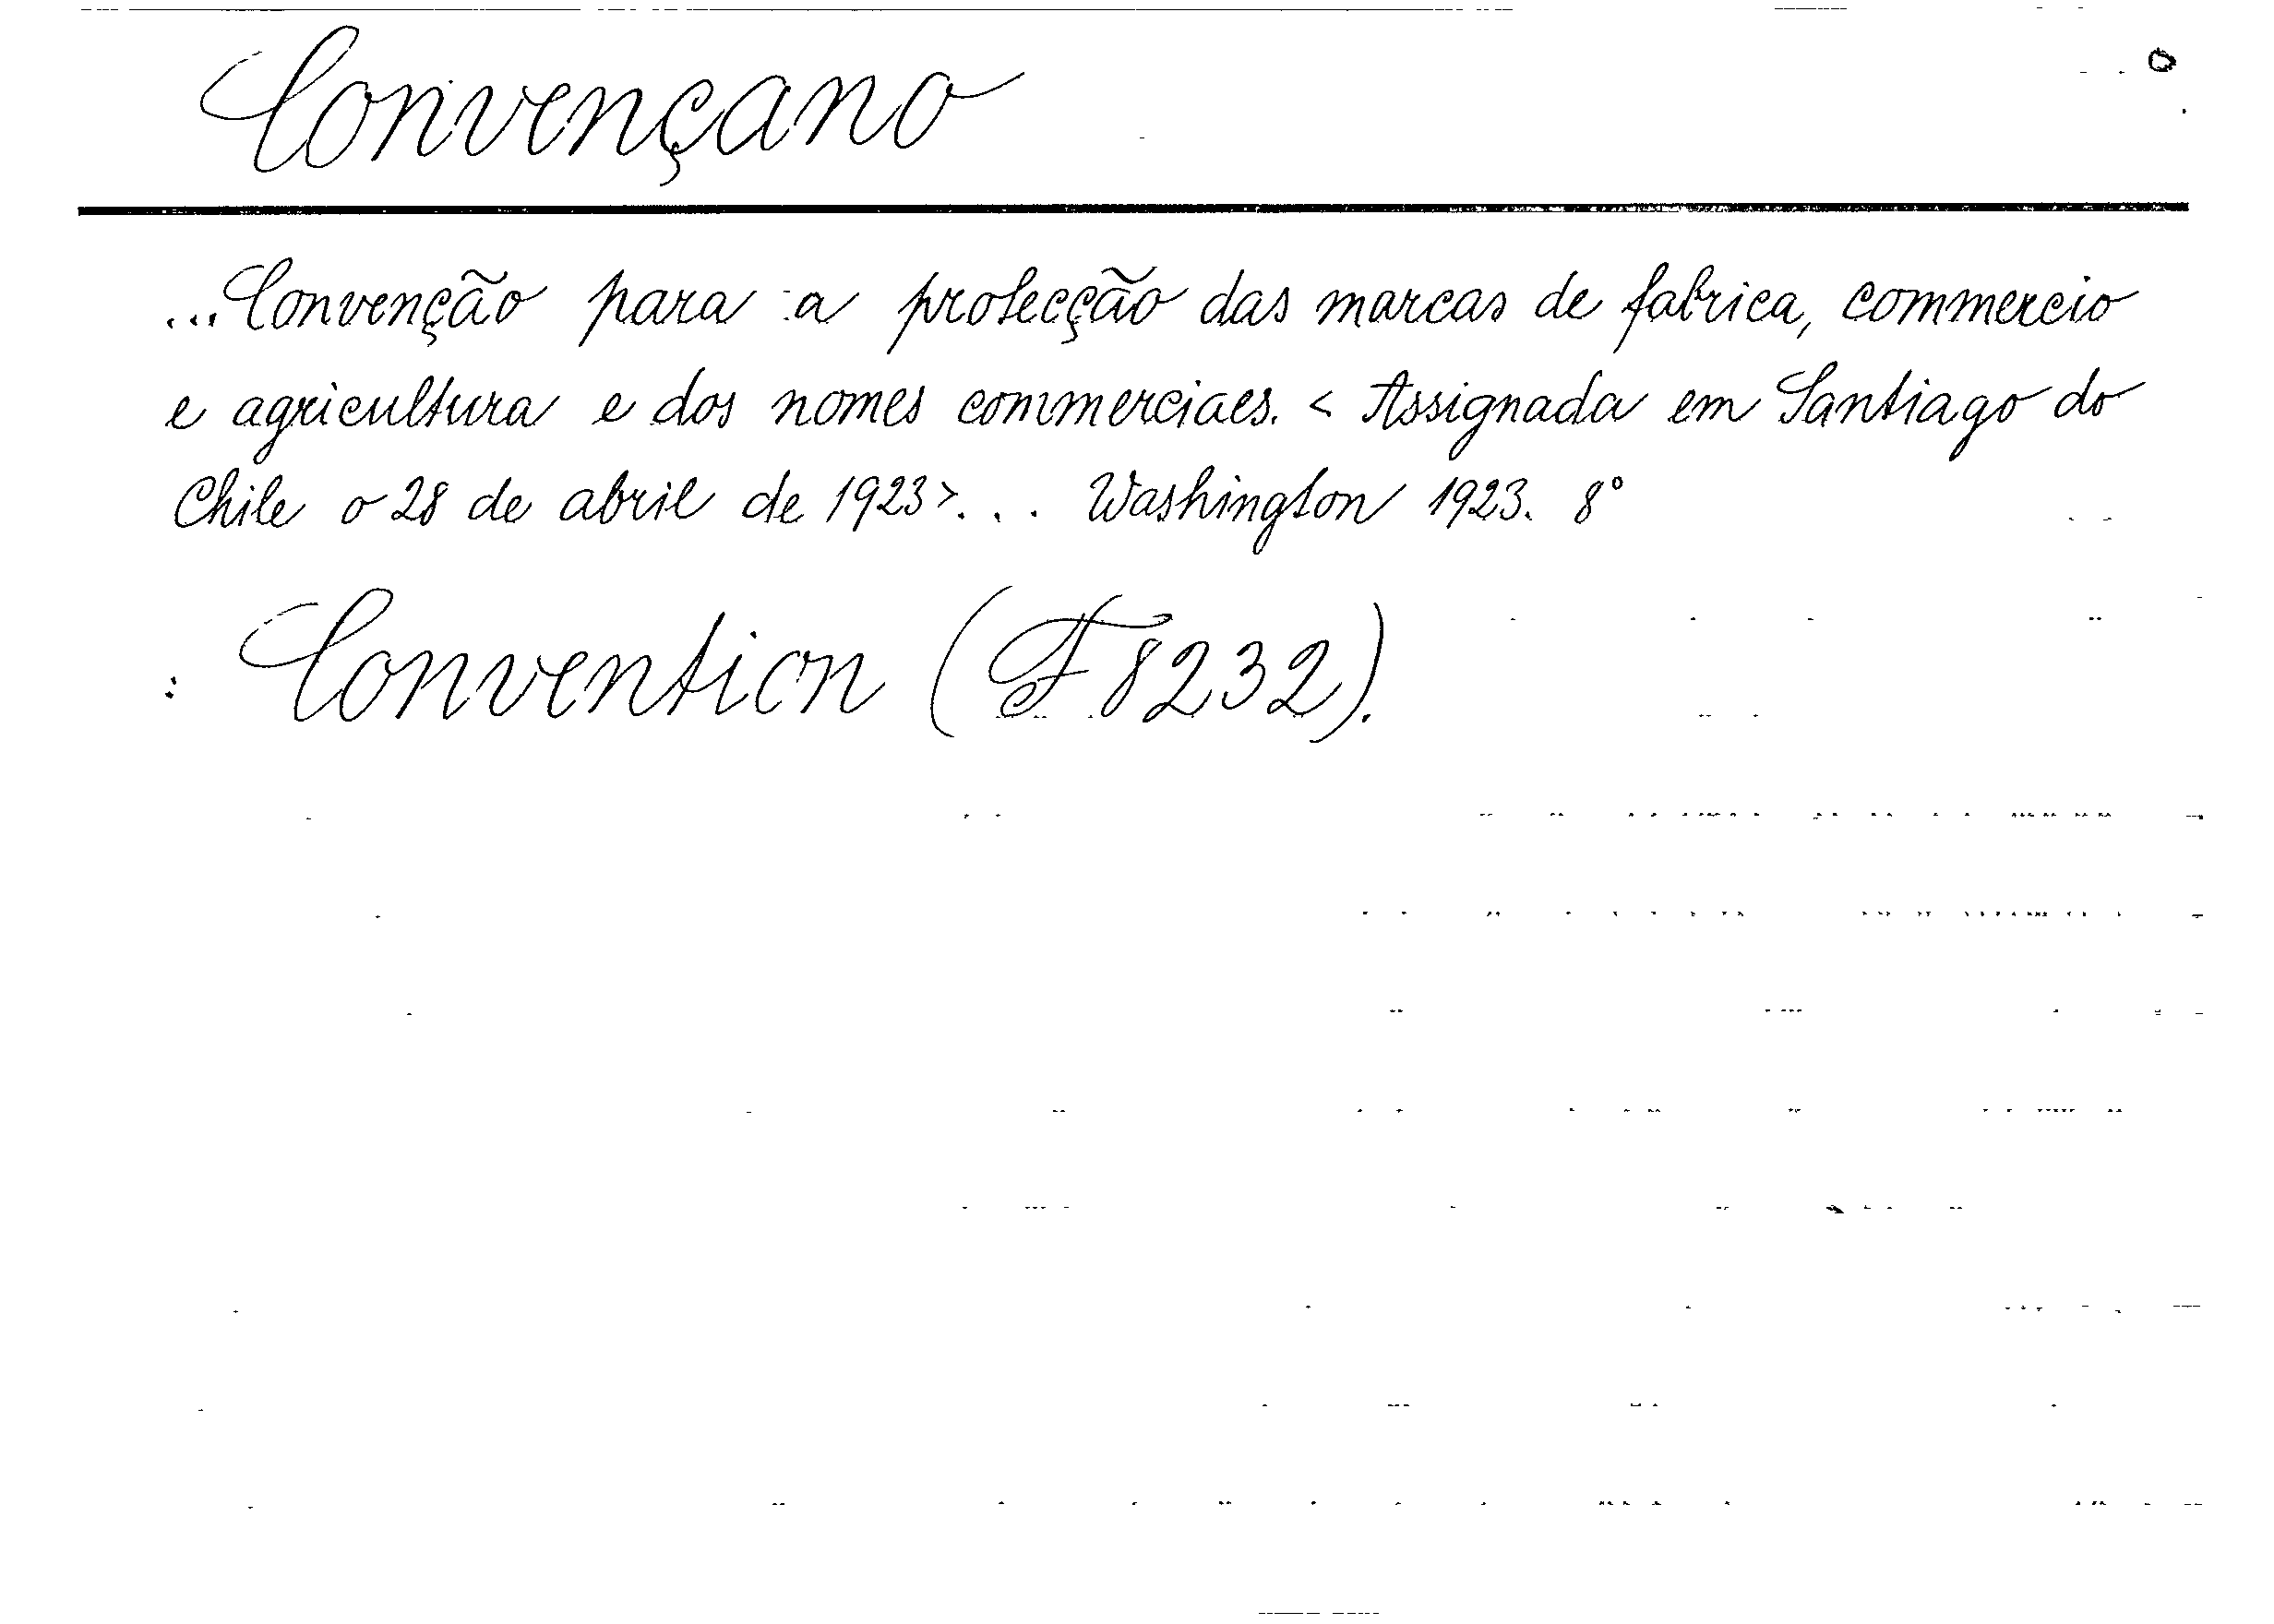 Convençano
...Convenção para a protecção das marcas de fabrica, commercio
e agricultura e dos nomes commerciaes. < Assignada em Santiago do
Chile o 28 de abril de 1923>... Washington 1923. 8°
: Convention (F 8232).